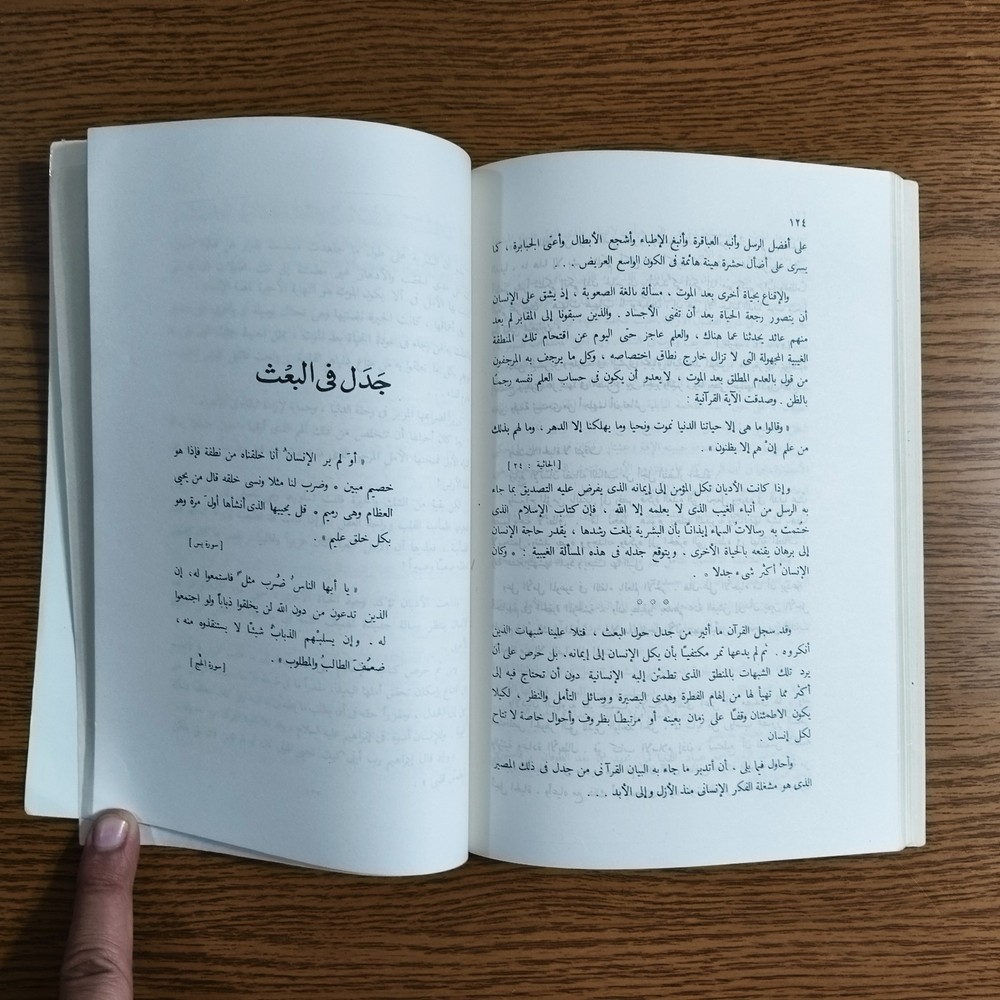 ١٢٤
على أفضل الرسل وأنبه العباقرة وأنبغ الإطباء وأشجع الأبطال وأعتى الجبابرة ، كما
يسرى على أضأل حشرة هينة هائمة فى الكون الواسع العريض . . .
والإقناع بحياة أخرى بعد الموت ، مسألة بالغة الصعوبة ، إذ يشق على الإنسان
أن يتصور رجعة الحياة بعد أن تفنى الأجساد . والذين سبقونا إلى المقابر لم يعد
منهم عائد يحدثنا عما هناك ، والعلم عاجز حتى اليوم عن اقتحام تلك المنطقة
الغيبية المجهولة التى لا تزال خارج نطاق اختصاصه ، وكل ما يرجف به المرجفون
من قول بالعدم المطلق بعد الموت ، لا يعدو أن يكون فى حساب العلم نفسه رجمًا
بالظن . وصدقت الآية القرآنية :
« وقالوا ما هى إلا حياتنا الدنيا نموت ونحيا وما يهلكنا إلا الدهر ، وما لهم بذلك
من علم إنْ هم إلا يظنون » .
[ الجاثية : ٢٤ ]
وإذا كانت الأديان تكل المؤمن إلى إيمانه الذى يفرض عليه التصديق بما جاء
به الرسل من أنباء الغيب الذى لا يعلمه إلا الله ، فإن كتاب الإسلام الذى
خُتمت به رسالات السماء إيذانًا بأن البشرية بلغت رشدها ، يقدر حاجة الإنسان
إلى برهان يقنعه بالحياة الأخرى . ويتوقع جدله فى هذه المسألة الغيبية : « وكان
الإنسانُ أكثرَ شىء جدلا » .
٥ ٥ ٥
وقد سجل القرآن ما أثير من جدل حول البعث ، فتلا علينا شبهات الذين
أنكروه . ثم لم يدعها تمر مكتفيًا بأن يكل الإنسان إلى إيمانه. بل حرص على أن
يرد تلك الشبهات بالمنطق الذى تطمئن إليه الإنسانية دون أن تحتاج فيه إلى
أكثر مما تهيأ لها من إلهام الفطرة وهدى البصيرة ووسائل التأمل والنظر ، لكيلا
يكون الاطمئنان وقفًا على زمان بعينه أو مرتبطًا بظروف وأحوال خاصة لا تتاح
لكل إنسان .
وأحاول فيما يلى . أن أتدبر ما جاء به البيان القرآنى من جدل فى ذلك المصير
الذى هو مشغلة الفكر الإنسانى منذ الأزل وإلى الأبد . . .
جَدَل فى البعْث
« أوَ لم ير الإنسانُ أنا خلقناه من نطفة فإذا هو
خصيم مبين * وضرب لنا مثلا ونسى خلقه قال من يحيى
العظام وهى رميم * قل يحييها الذى أنشأها أولَ مرة وهو
بكل خلق عليم » .
[ سورة يس ]
« يا أيها الناسُ ضُرب مثلٌ فاستمعوا له، إن
الذين تدعون من دون الله لن يخلقوا ذباباً ولو اجتمعوا
له . وإن يسلبْهم الذبابُ شيئًا لا يستنقذوه منه ،
ضعُفَ الطالبُ والمطلوب » .
[ سورة الحج ]